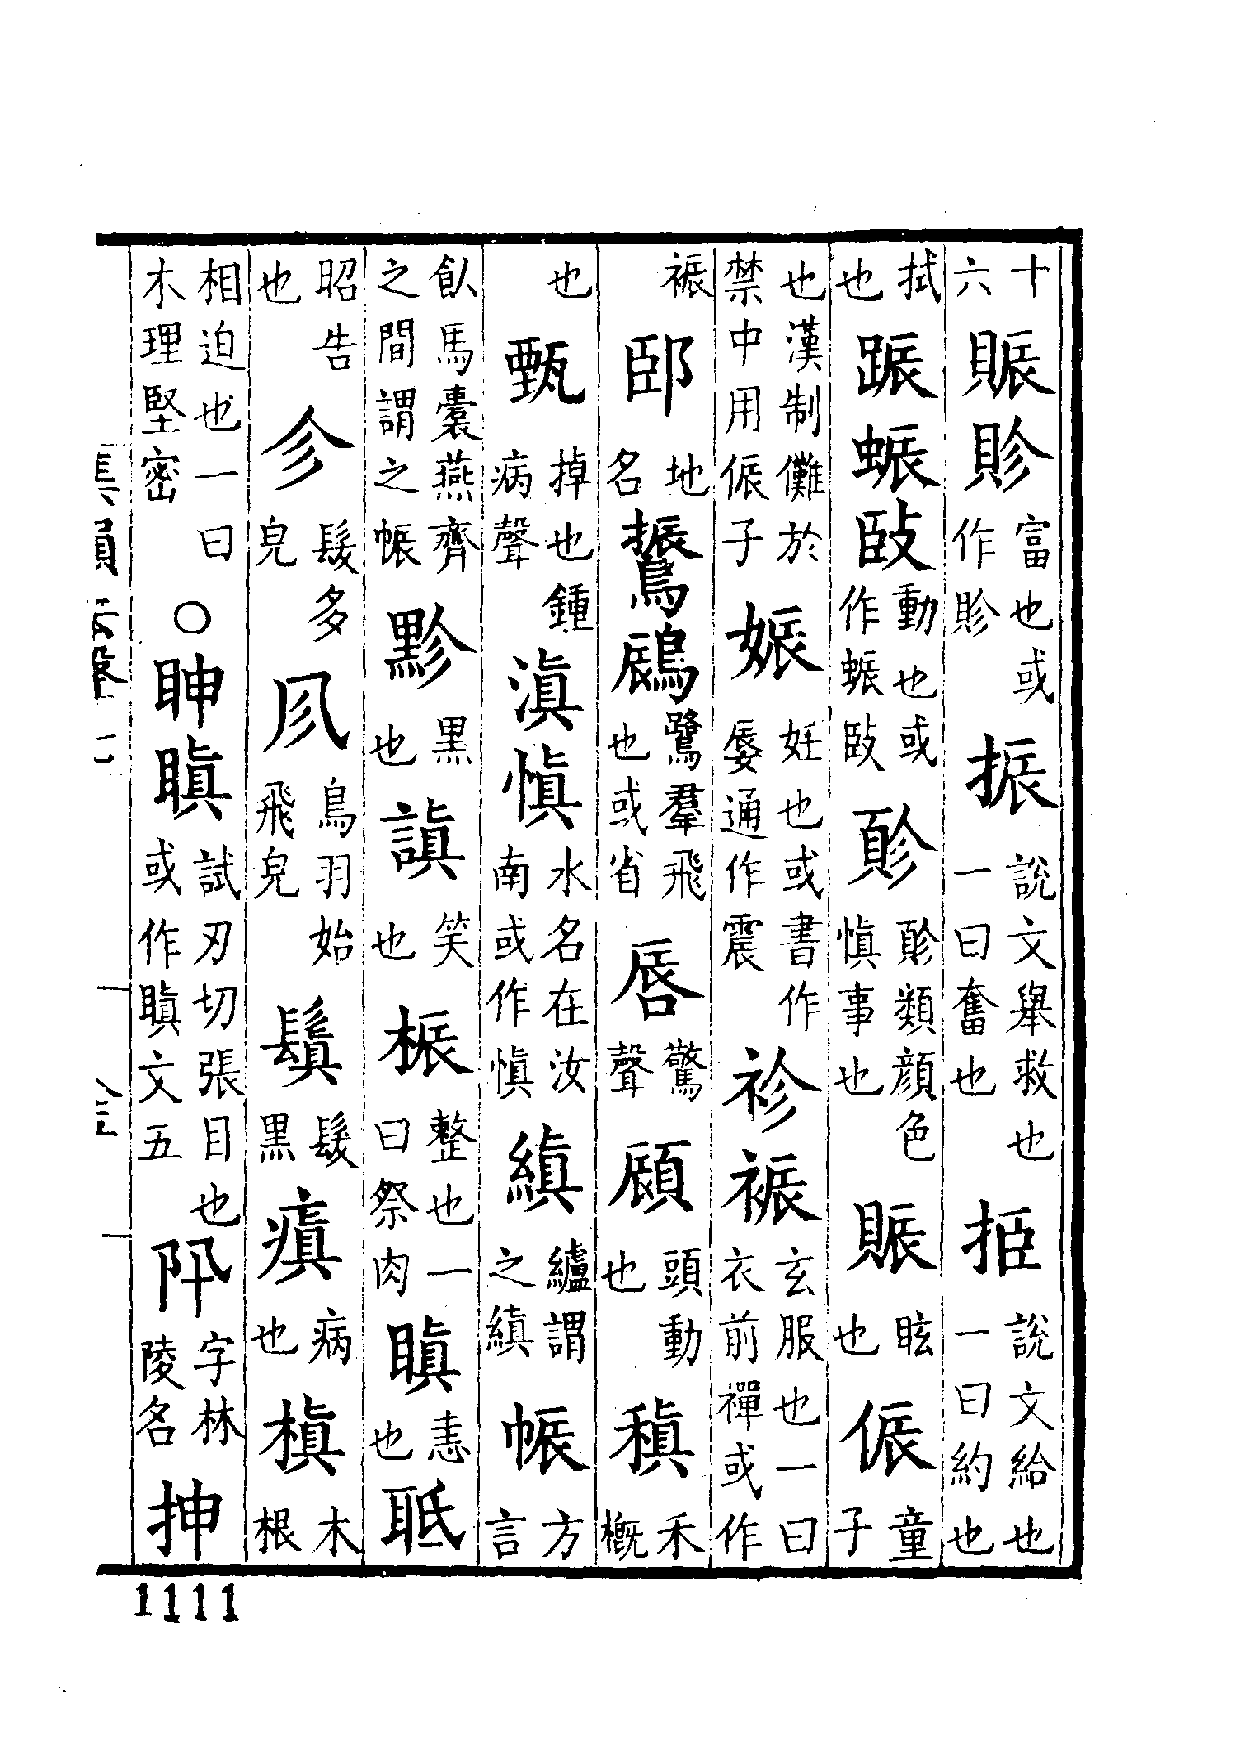 十六賑䝩富也或作䝩振說文舉救也一曰奮也挋說文給也一曰約也
拭也踬蜄䟴動也或作蜄䟴䫖䫖䫖顏色愼事也賑眩也侲童子
也漢制儺於禁中用侲子娠妊也或書作㖘通作震袗裖玄服也一曰衣前襌或作
裖䣅地名鷐鷐鷺羣飛也或省唇驚聲䫃頭動也稹禾穊
也甄掉也鍾病聲滇愼水名在汝南或作愼縝纑謂之縝帪方言
飤馬囊燕齊之間謂之帪黰黑也謓笑也桭整也一曰祭肉瞋恚也聄
昭告也㐱髮多皃𠘱鳥羽始飛皃鬒髮黑瘨病也槙木根
相迫也一曰木理堅密○眒瞋試刃切張目也或作瞋文五阠字林陵名抻
集韻去聲上
1111